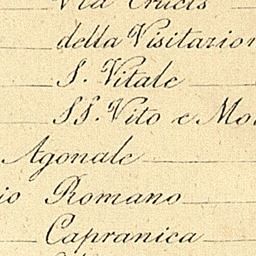 Via Crucis
della Visitazion
S. Vitale
SS. Vito e Mo
Agonale
io Romano
Capranica